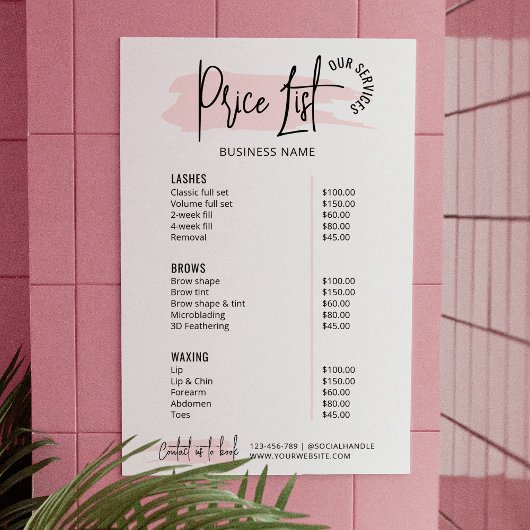 Price List
OUR SERVICES
BUSINESS NAME
LASHES
Classic full set $100.00
Volume full set $150.00
2-week fill $60.00
4-week fill $80.00
Removal $45.00
BROWS
Brow shape $100.00
Brow tint $150.00
Brow shape & tint $60.00
Microblading $80.00
3D Feathering $45.00
WAXING
Lip $100.00
Lip & Chin $150.00
Forearm $60.00
Abdomen $80.00
Toes $45.00
Contact us to book
123-456-789 | @SOCIALHANDLE
WWW.YOURWEBSITE.COM